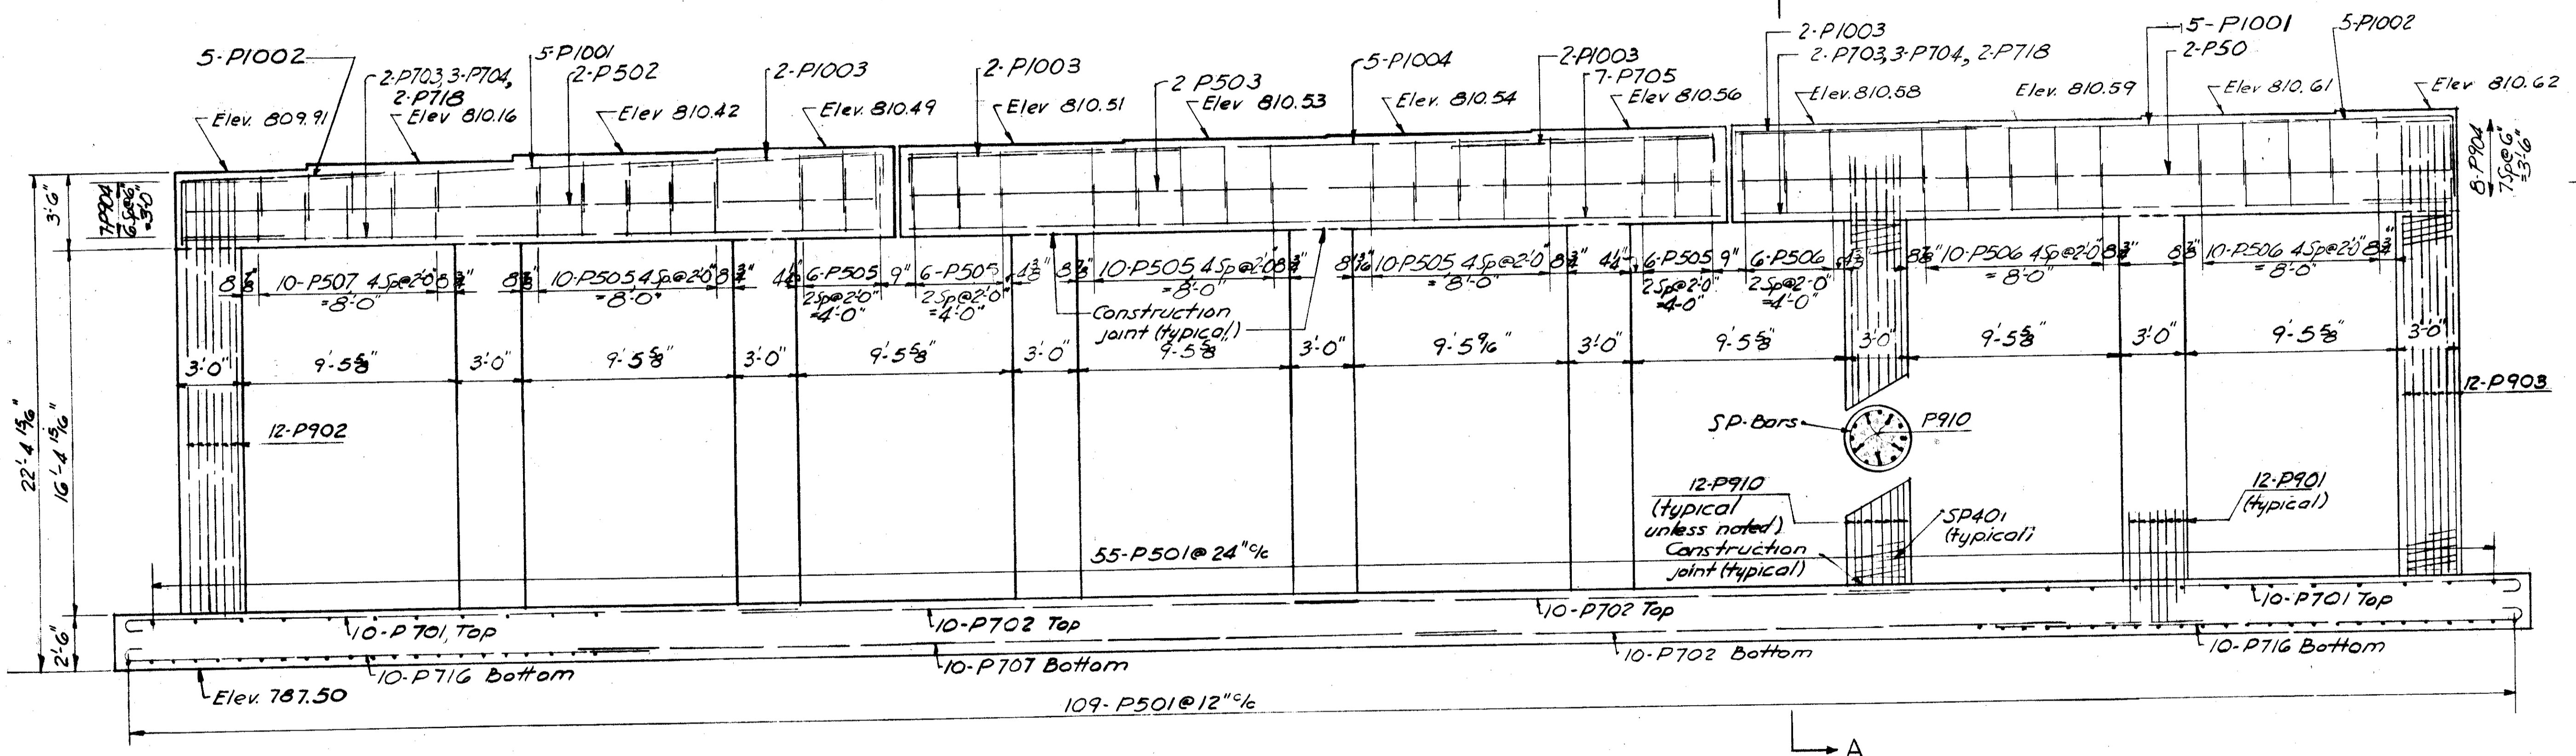 5-P1002
2-P703, 3-P704,
2-P718
5-P1001
2-P502
2-P1003
2-P1003
2 P503
5-P1004
2-P1003
7-P705
2-P1003
2-P703, 3-P704, 2-P718
5-P1001
2-P50
5-P1002
Elev. 809.91
Elev 810.16
Elev 810.42
Elev. 810.49
Elev 810.51
Elev 810.53
Elev. 810.54
Elev 810.56
Elev. 810.58
Elev. 810.59
Elev. 810.61
Elev 810.62
3'-6"
7-P904
6 Sp@6"
=3'-0"
8-P904
7 Sp@6"
=3'-6"
8 7/8"
10-P507, 4 Sp@2'-0"
=8'-0"
8 3/4"
10-P505, 4 Sp@2'-0"
=8'-0"
8 3/4"
6-P505
2 Sp@2'-0"
=4'-0"
9"
6-P505
2 Sp@2'-0"
=4'-0"
4 3/8"
8 7/8"
10-P505, 4 Sp@2'-0"
=8'-0"
8 3/4"
8 13/16"
10-P505, 4 Sp@2'-0"
=8'-0"
8 3/4"
4 1/4"
6-P505
2 Sp@2'-0"
=4'-0"
9"
6-P506
2 Sp@2'-0"
=4'-0"
10-P506 4 Sp@2'-0"
=8'-0"
8 3/4"
8 7/8"
10-P506 4 Sp@2'-0"
=8'-0"
8 3/4"
Construction
joint (typical)
3'-0"
9'-5 5/8"
3'-0"
9'-5 5/8"
3'-0"
9'-5 5/8"
3'-0"
9'-5 5/8"
3'-0"
9'-5 9/16"
3'-0"
9'-5 5/8"
3'-0"
9'-5 5/8"
3'-0"
9'-5 5/8"
3'-0"
22'-4 15/16"
16'-4 15/16"
2'-6"
12-P902
12-P903
SP-Bars
P910
12-P910
(typical
unless noted)
Construction
joint (typical)
SP401
(typical)
12-P901
(typical)
55-P501@24" c/c
10-P701, Top
10-P702 Top
10-P702 Top
10-P701 Top
10-P716 Bottom
10-P707 Bottom
10-P702 Bottom
10-P716 Bottom
Elev. 787.50
109-P501@12" c/c
A